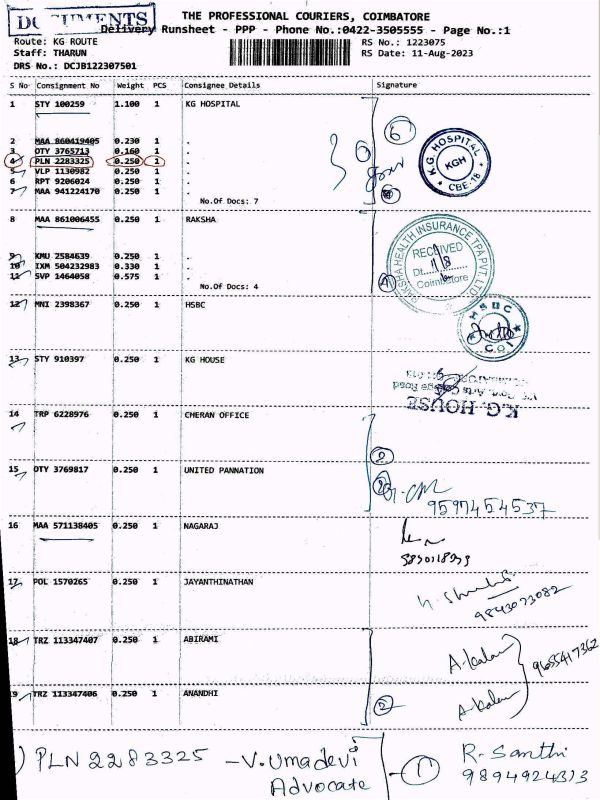 DOCUMENTS
THE PROFESSIONAL COURIERS, COIMBATORE
Delivery Runsheet - PPP - Phone No.:0422-3505555 - Page No.:1
Route: KG ROUTE
RS No.: 1223075
Staff: THARUN
RS Date: 11-Aug-2023
DRS No.: DCJB122307501
S No Consignment No Weight PCS Consignee Details Signature
1 STY 100259 1.100 1 KG HOSPITAL
2 MAA 860419405 0.230 1 .
3 OTY 3765713 0.160 1 .
4 PLN 2283325 0.250 1 .
5 VLP 1130982 0.250 1 .
6 RPT 9206024 0.250 1 .
7 MAA 941224170 0.250 1 .
No.Of Docs: 7
6
K.G. HOSPITAL
KGH
CBE-18
8 MAA 861006455 0.250 1 RAKSHA
9 KMU 2584639 0.250 1 .
10 IXM 504232983 0.330 1 .
11 SVP 1464058 0.575 1 .
No.Of Docs: 4
RAKSHA HEALTH INSURANCE TPA PVT. LTD
RECEIVED
Dt. 11/8
Coimbatore
4
12 MNI 2398367 0.250 1 HSBC
HSBC
13 STY 910397 0.250 1 KG HOUSE
K.G. HOUSE
14 TRP 6228976 0.250 1 CHERAN OFFICE
15 OTY 3769817 0.250 1 UNITED PANNATION
9597454537
16 MAA 571138405 0.250 1 NAGARAJ
17 POL 1570265 0.250 1 JAYANTHINATHAN
9843073082
18 TRZ 113347407 0.250 1 ABIRAMI
A.Kala
9655417362
19 TRZ 113347406 0.250 1 ANANDHI
A.Kala
2
) PLN 2283325 - V.Umadevi
Advocate
1
R. Santhi
9894924313